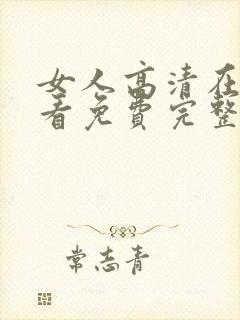 女人高清在
看免费完整
常志青